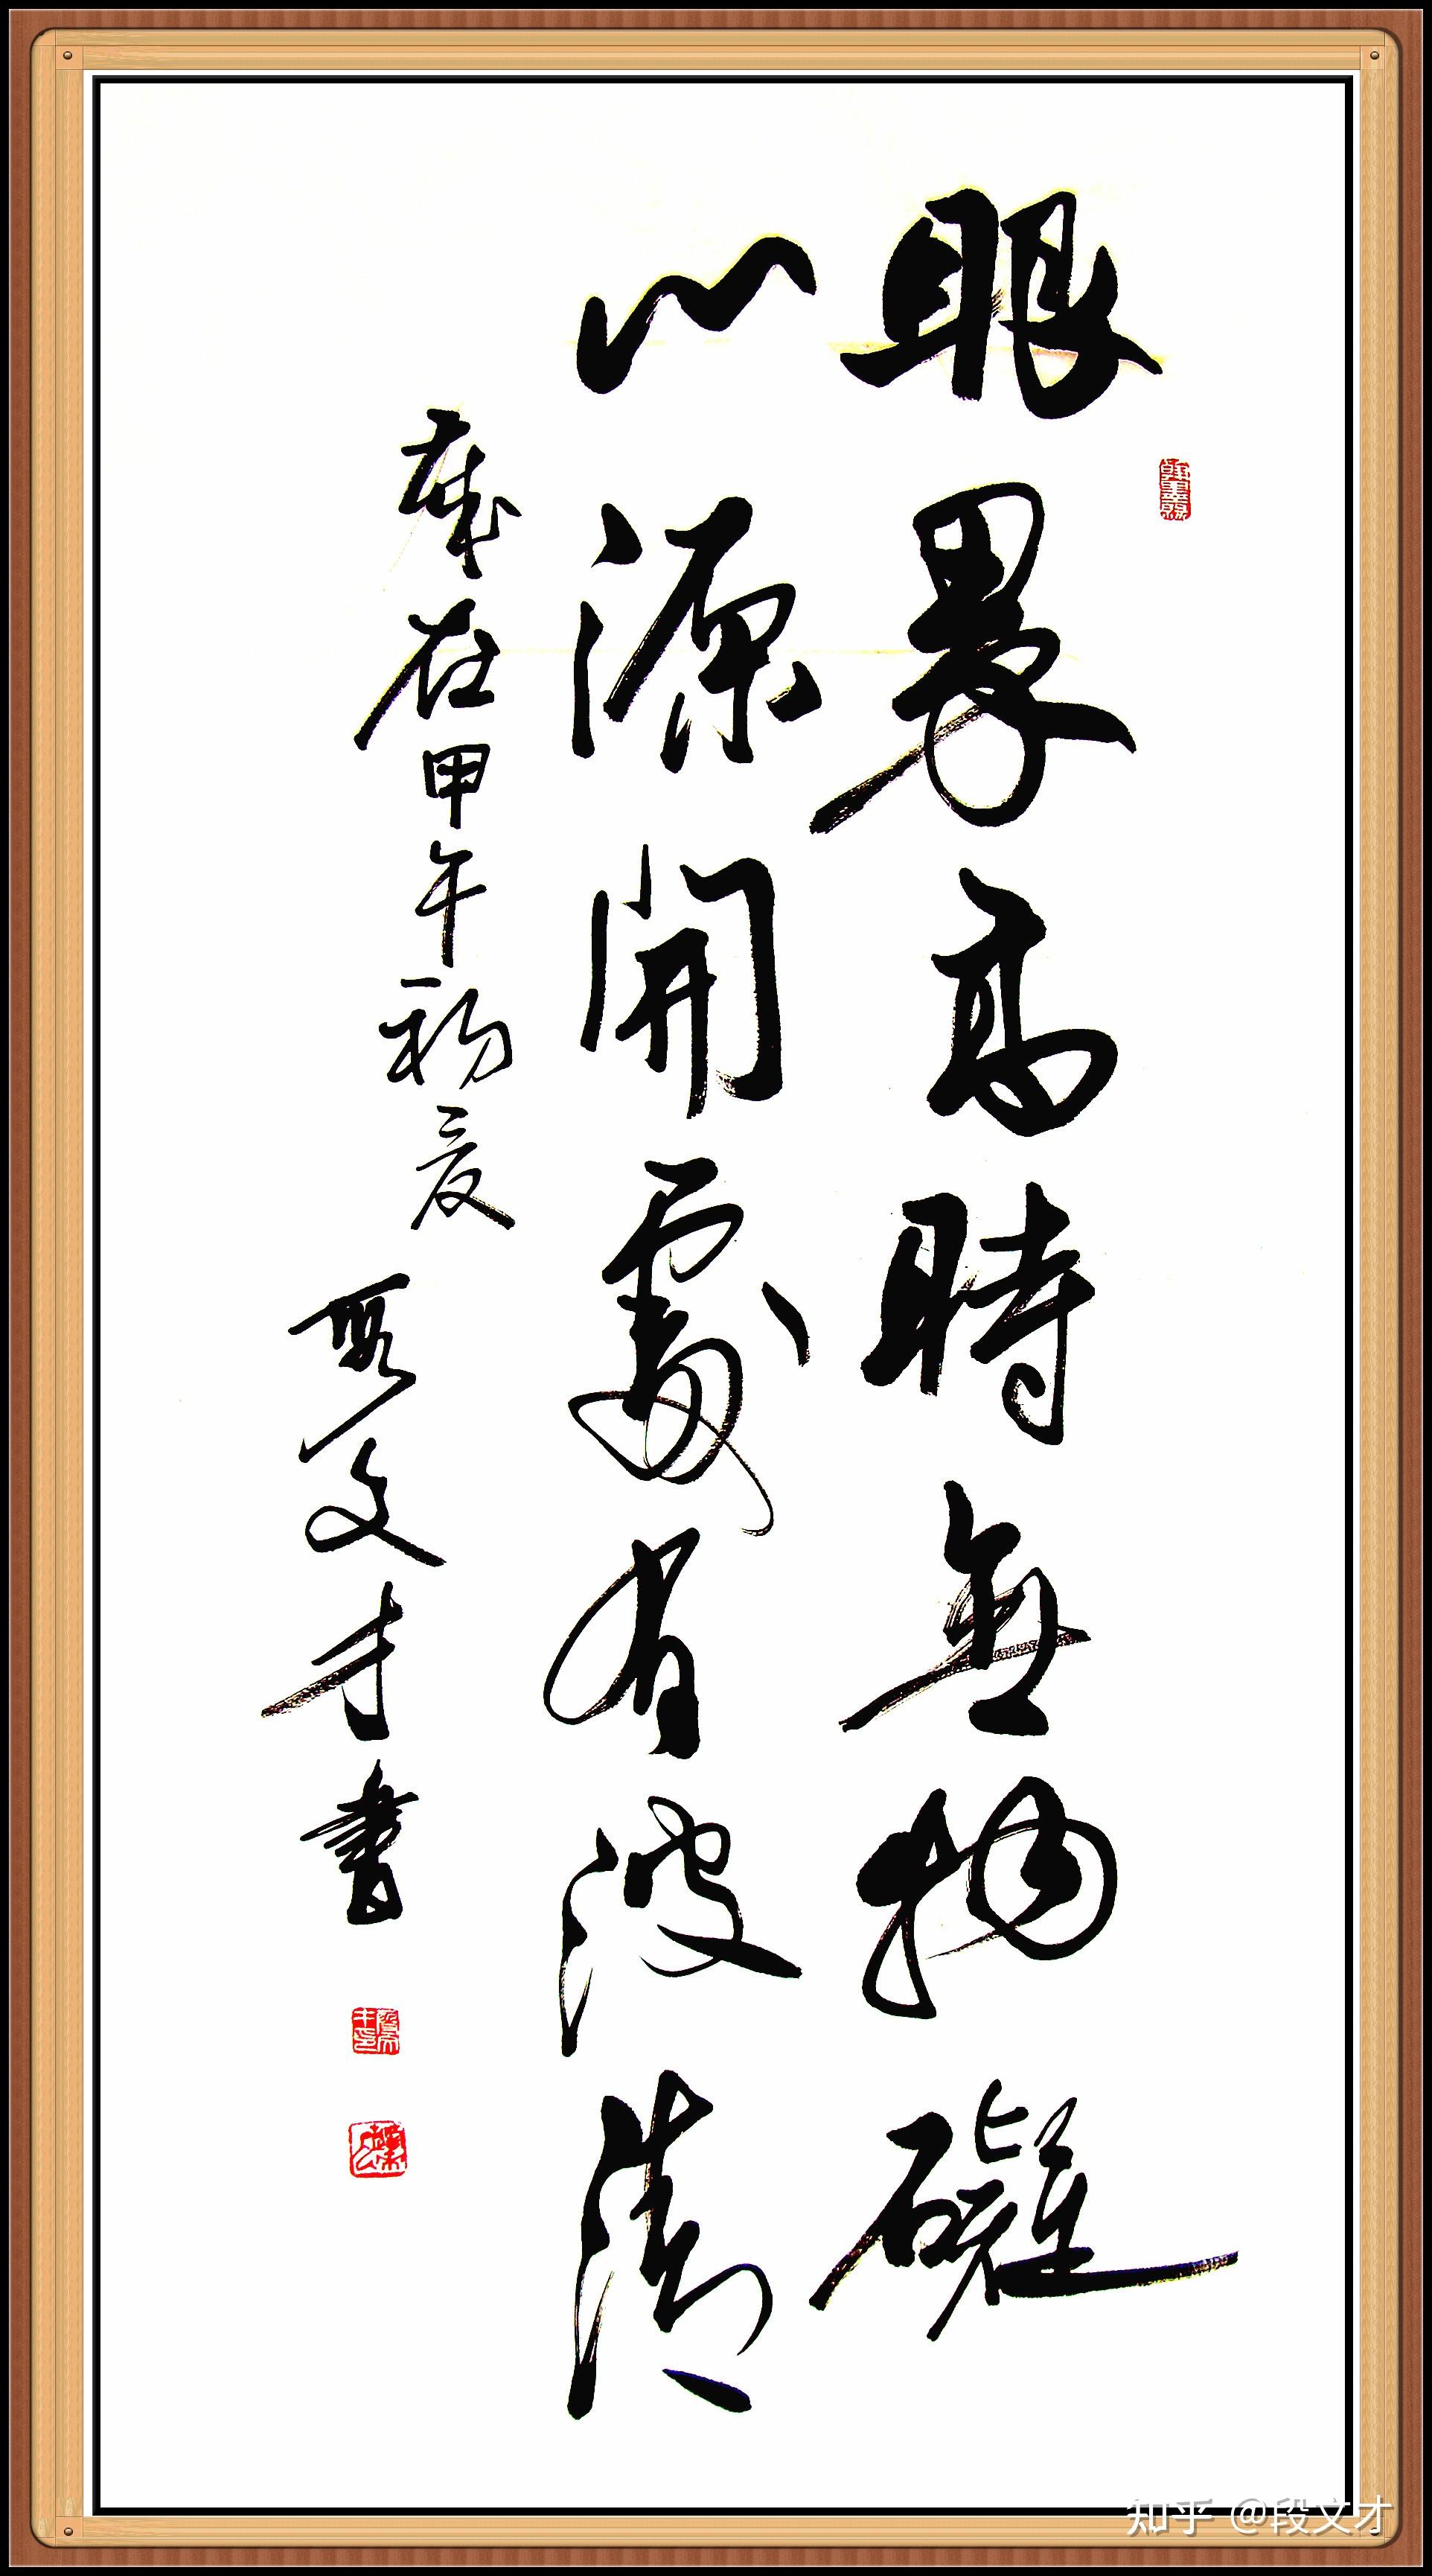 眼界高時無物礙
心源開處有波清
歲在甲午初夏
段文才書
知乎 @段文才